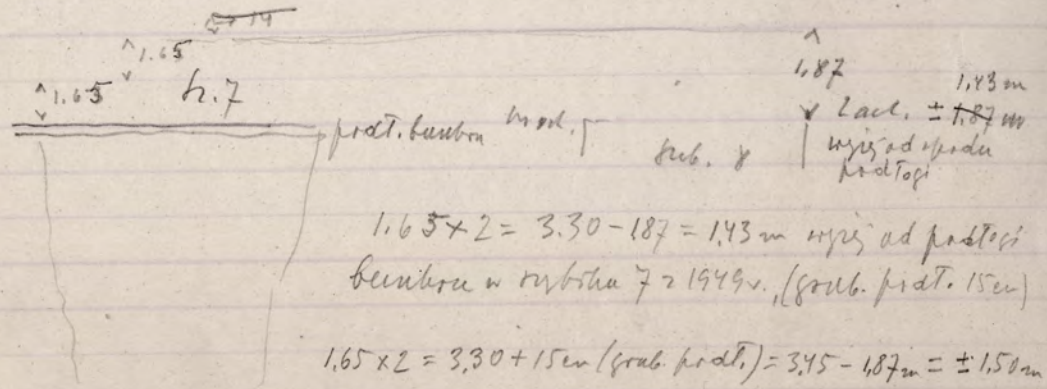 1.65
1.65
1,87
1,43 m
podł. bunkra wsch. Zach. ± 1,87 m
wyżej od spodu
podłogi
1.65 x 2 = 3.30 - 187 = 1,43 m wyżej od podłogi
bunkra w szybiku 7 z 1949 r. (grub. podł. 15 cm)
1,65 x 2 = 3,30 + 15 cm (grub. podł.) = 3,45 - 1,87 m = ± 1,50 m